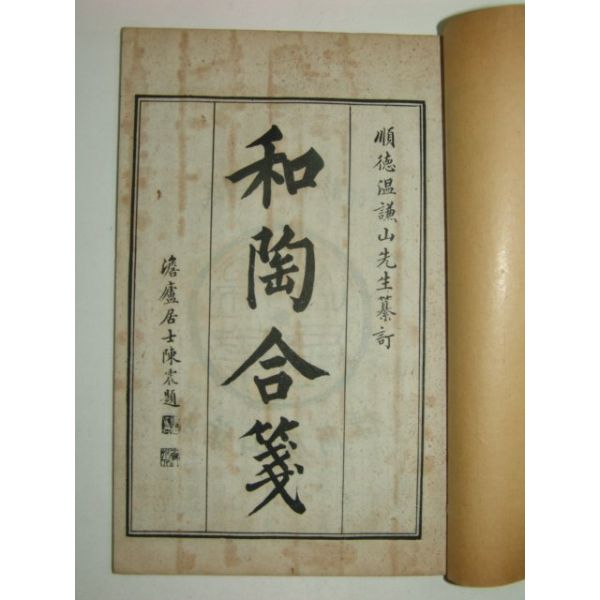 順德温謙山先生纂訂
和陶合箋
澹廬居士陳衮題